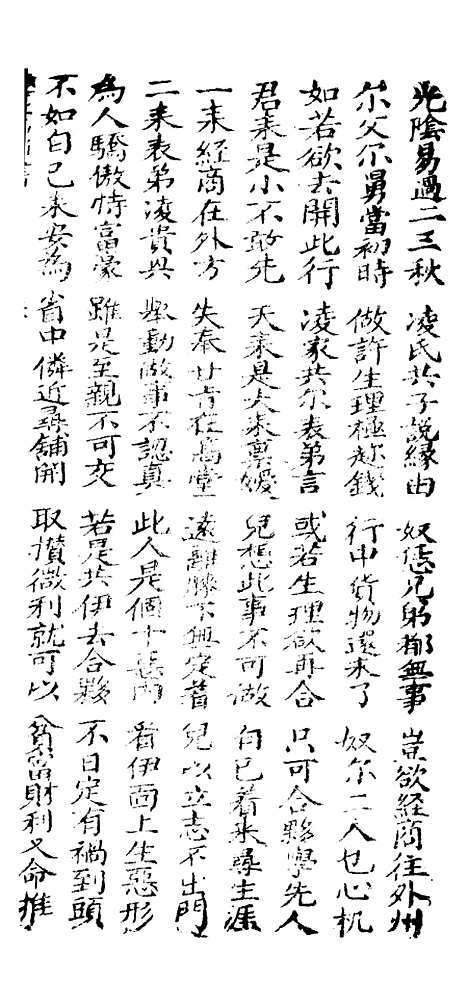 光陰易過二三秋 凌氏共子說緣由 奴恁兄弟都無事 豈欲經商往外州
尔父尔舅當初時 做許生理極趁錢 行中貨物還來了 奴尔二人乜心机
如若欲去開此行 凌家共尔表弟言 或若生理欲再合 只可合夥學先人
君來是小不敢先 天來是大來稟嬡 兒想此事不可做 自己着來尋生涯
一來經商在外方 失奉甘旨在高堂 遠離膝下無定着 兒以立志不出門
二來表弟凌貴興 舉動做事不認真 此人是個十惡 看伊面上生惡形
為人驕傲恃富豪 雖是至親不可交 若是共伊去合夥 不日定有禍到頭
不如自己來安為 省中僯近尋舖開 取攢微利就可以 貧富財利又命推